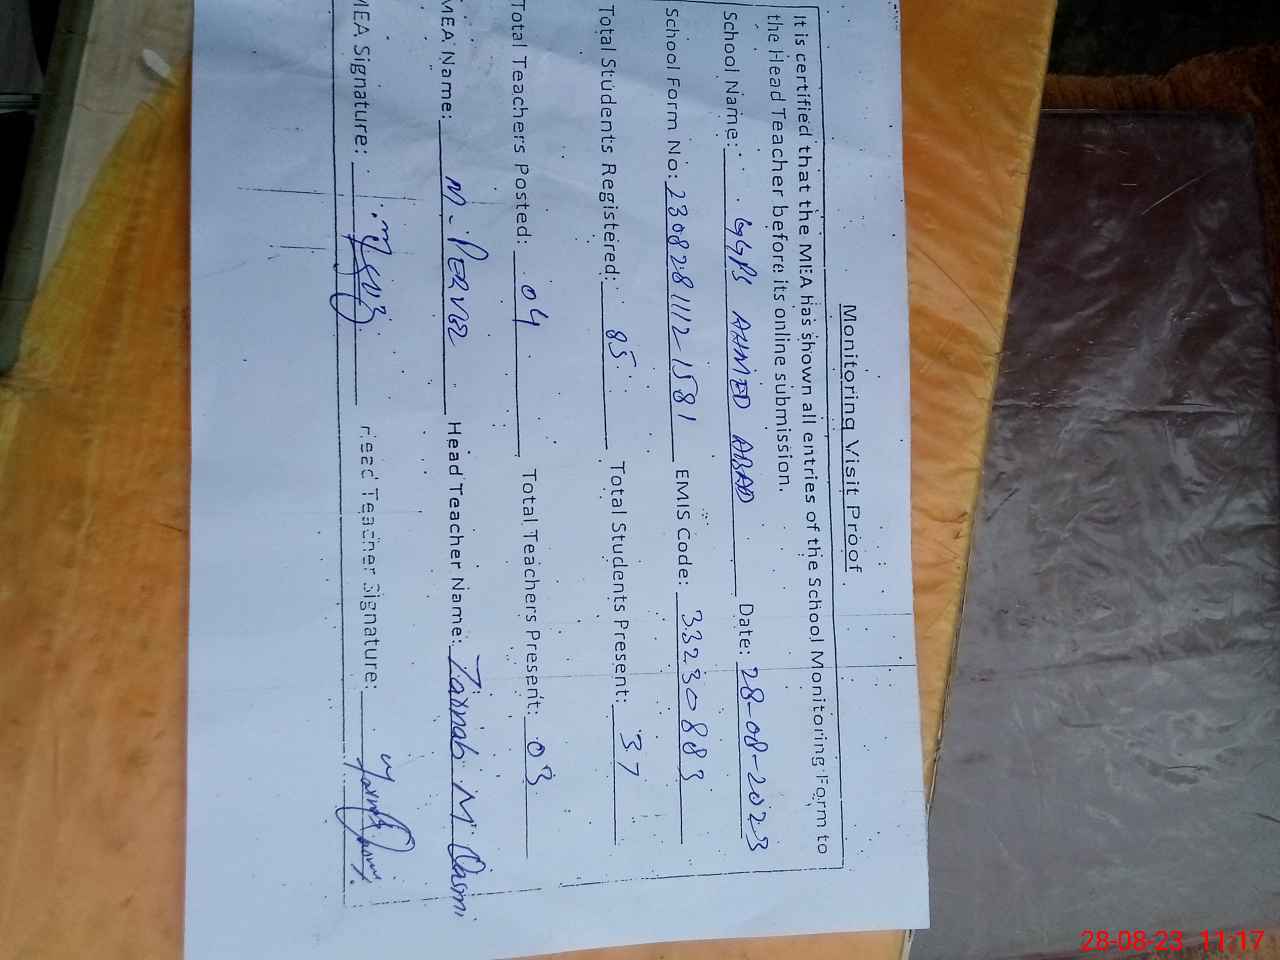 Monitoring Visit Proof
It is certified that the MEA has shown all entries of the School Monitoring Form to
the Head Teacher before its online submission.
School Name: GGPS AHMED ABAD Date: 28-08-2023
School Form No: 2308281112-1581 EMIS Code: 33230883
Total Students Registered: 85 Total Students Present: 37
Total Teachers Posted: 04 Total Teachers Present: 03
MEA Name: M. PERVEZ Head Teacher Name: M
MEA Signature: Head Teacher Signature:
28-08-23 11:17